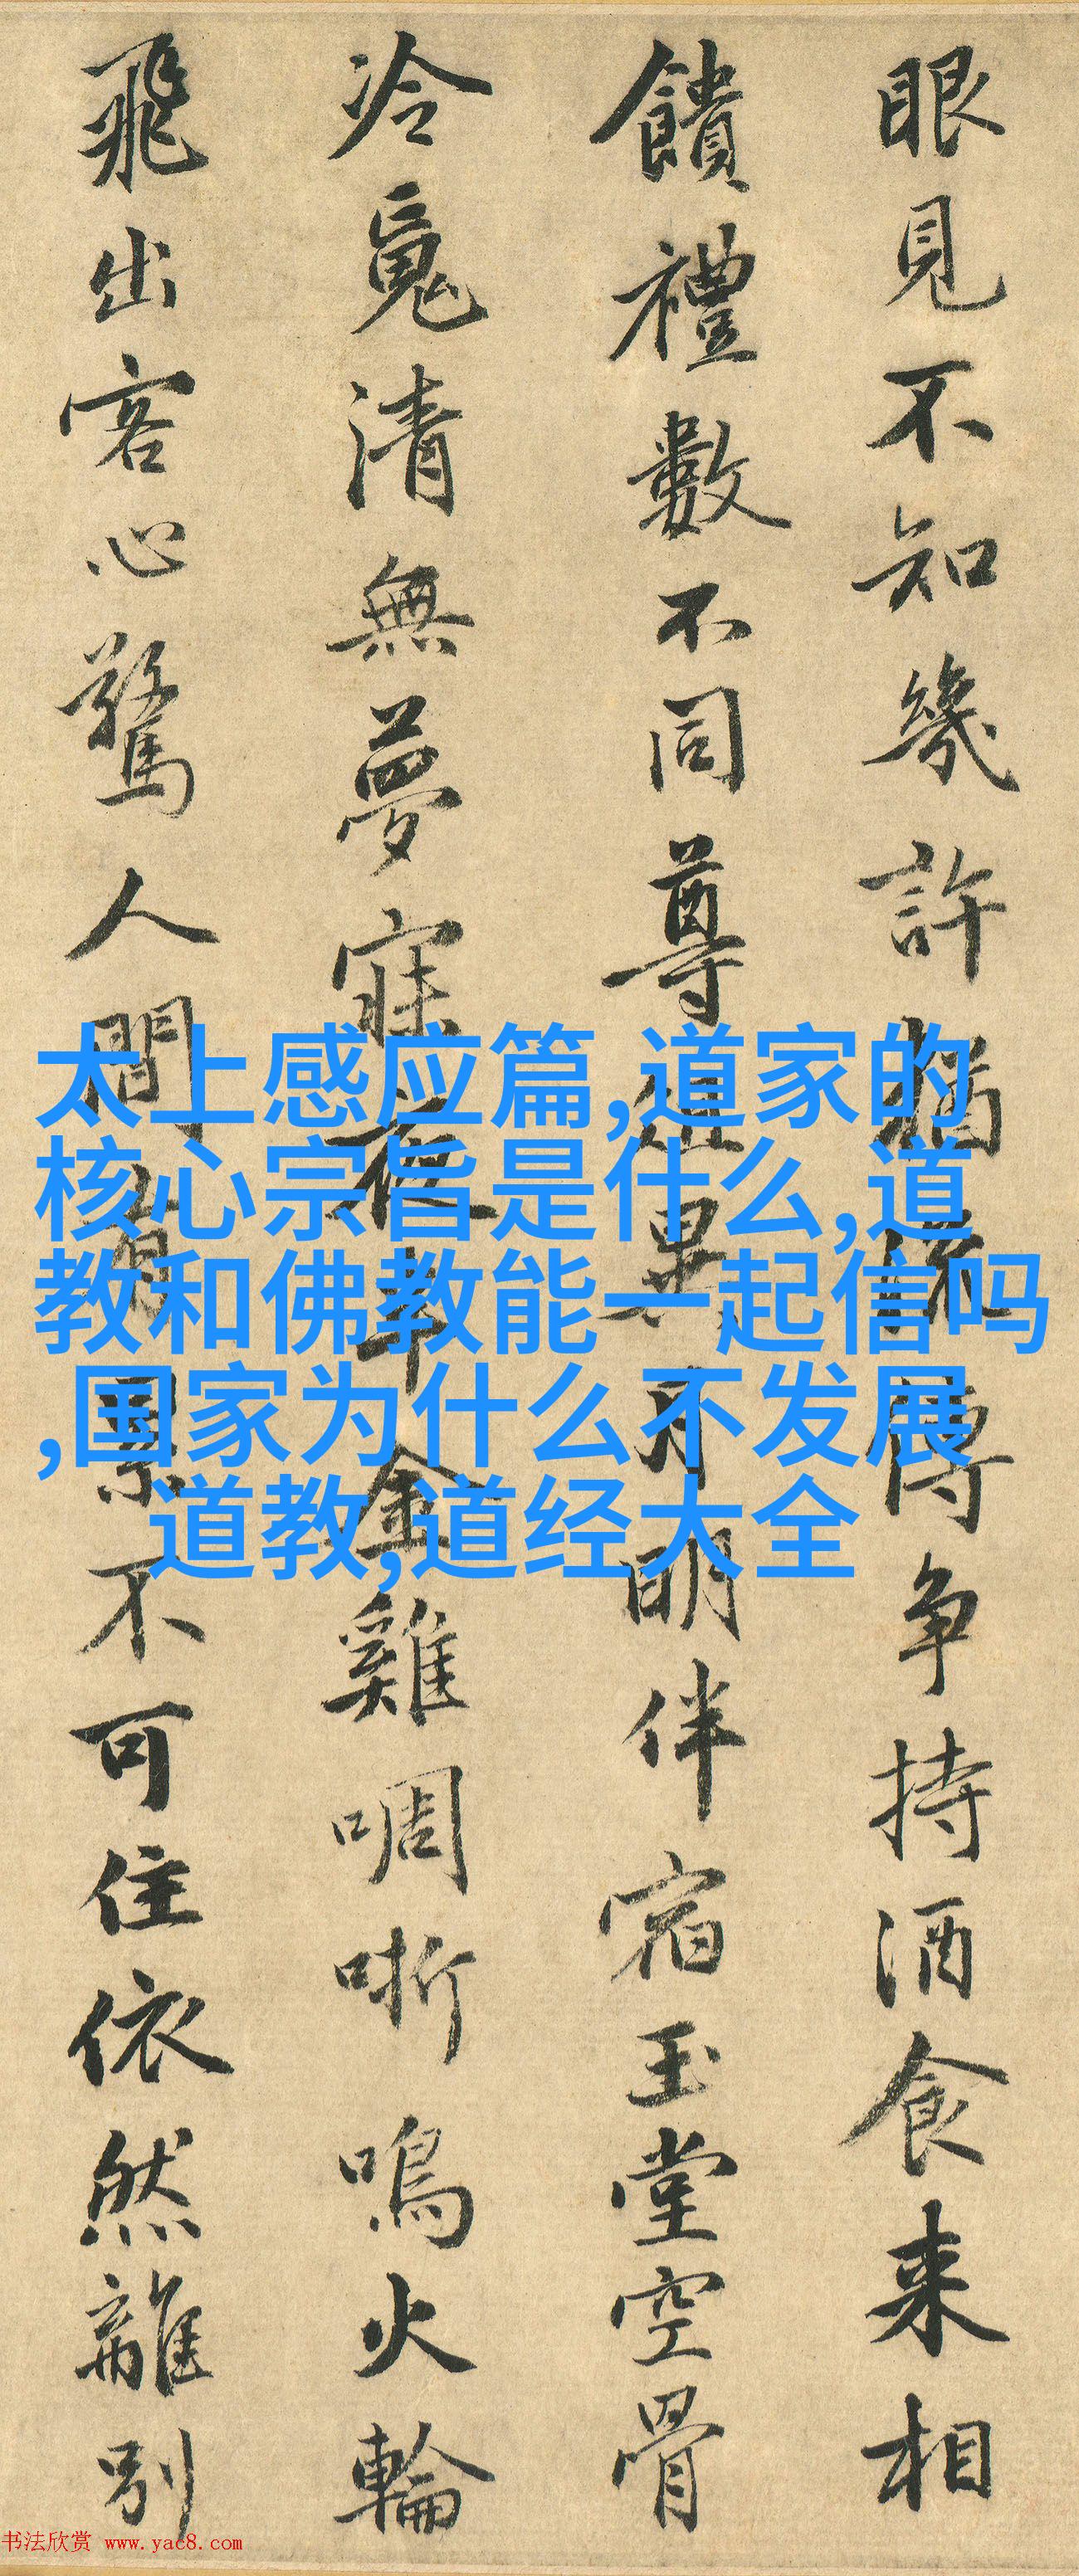 眼見不知幾許猶流傳争持酒食来相
饋禮數不同尊俎異月明伴宿玉堂空骨
冷䰟清無夢寐夜半金雞啁哳鳴火輪
飛出客心驚人間有累不可住依然離別
太上感应篇,道家的
核心宗旨是什么,道
教和佛教能一起信吗
,国家为什么不发展
道教,道经大全
书法欣赏 www.yac8.com